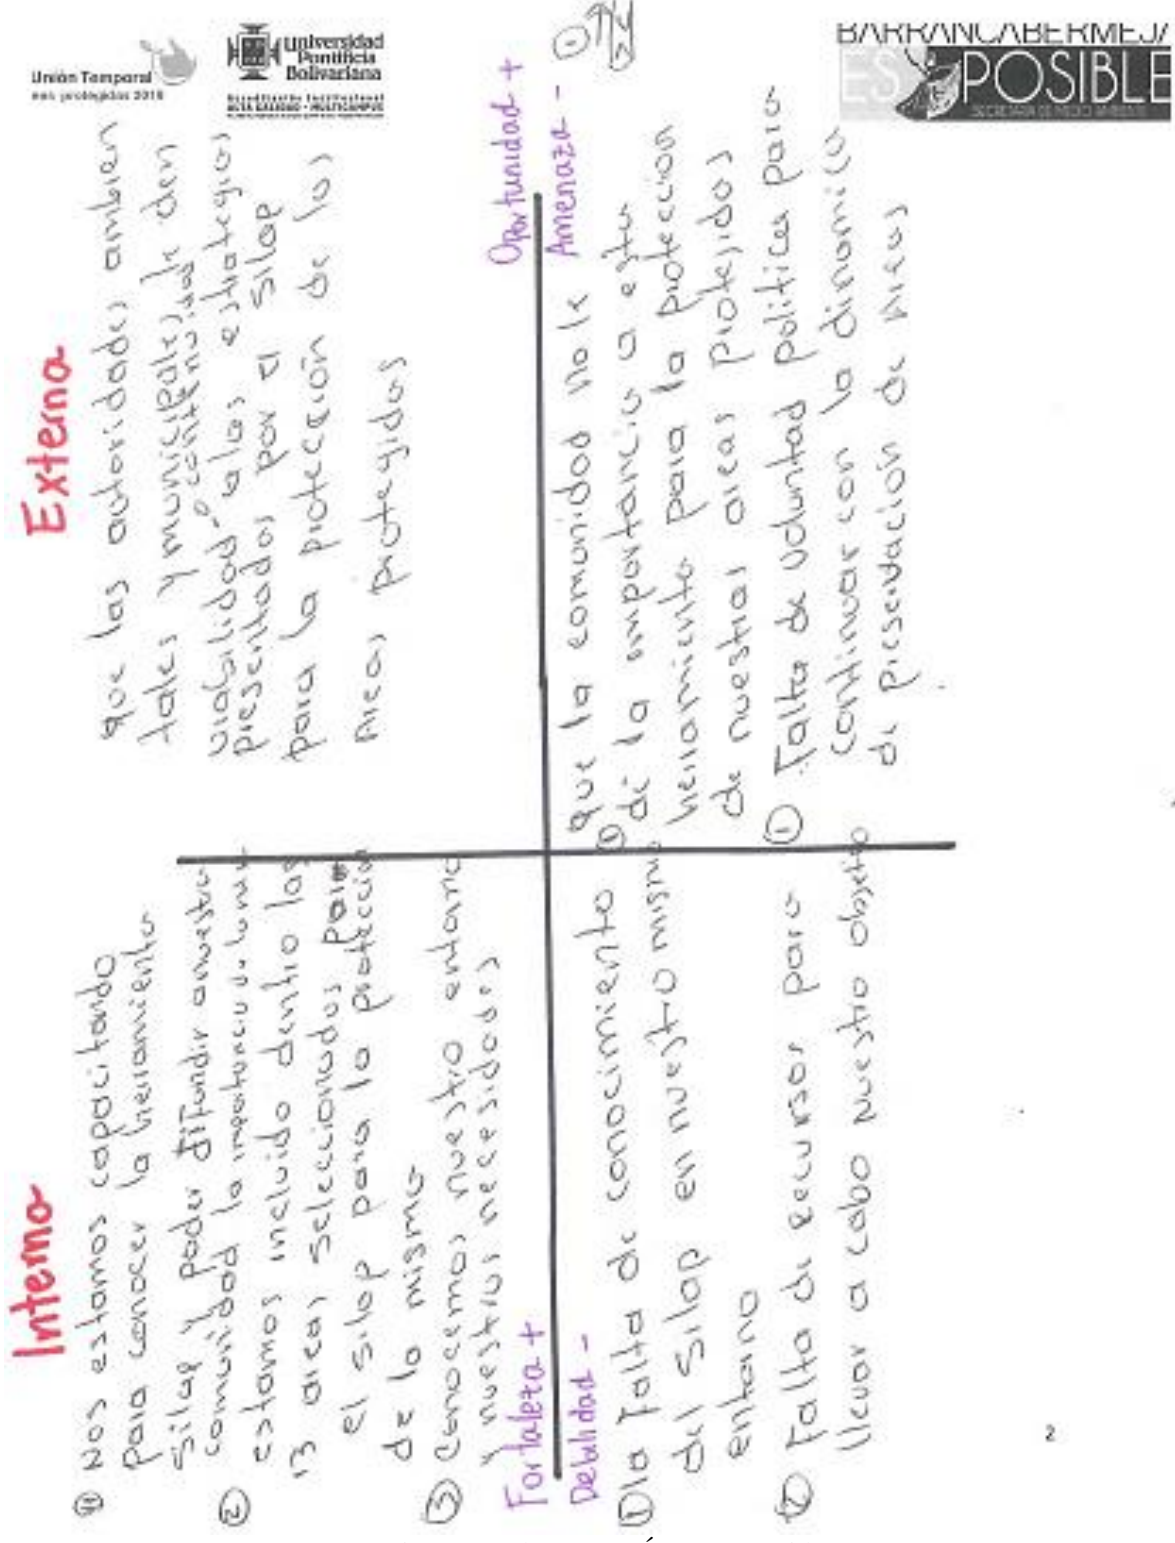 Unión Temporal
Universidad
Pontificia
Bolivariana
BARRANCABERMEJA
ES POSIBLE
Interno
Externa
① Nos estamos capacitando
para conocer la herramienta
Silap y poder difundir a nuestra
comunidad la importancia de la misma
② estamos incluido dentro las
13 areas seleccionados para
el silap para la protección
de la misma
③ conocemos nuestro entorno
y nuestras necesidades
Fortaleza +
Debilidad -
① la falta de conocimiento
del Silap en nuestro mismo
entorno
② Falta de recursos para
llevar a cabo nuestro objetivo
que las autoridades ambien
tales y municipales, le den
viabilidad o continuidad
a las estrategias
presentados por el Silap
para la protección de las
Areas protegidas
Oportunidad +
Amenaza -
①
que la comunidad no le
① dé la importancia a esta
herramienta para la protección
de nuestras areas protejidas
① Falta de voluntad politica para
continuar con la dinamica
de preservación de Areas
2